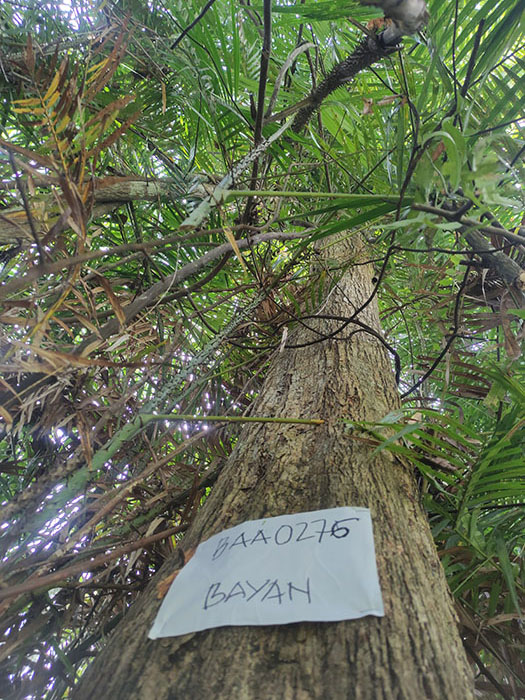 BAA0276
BAYAN